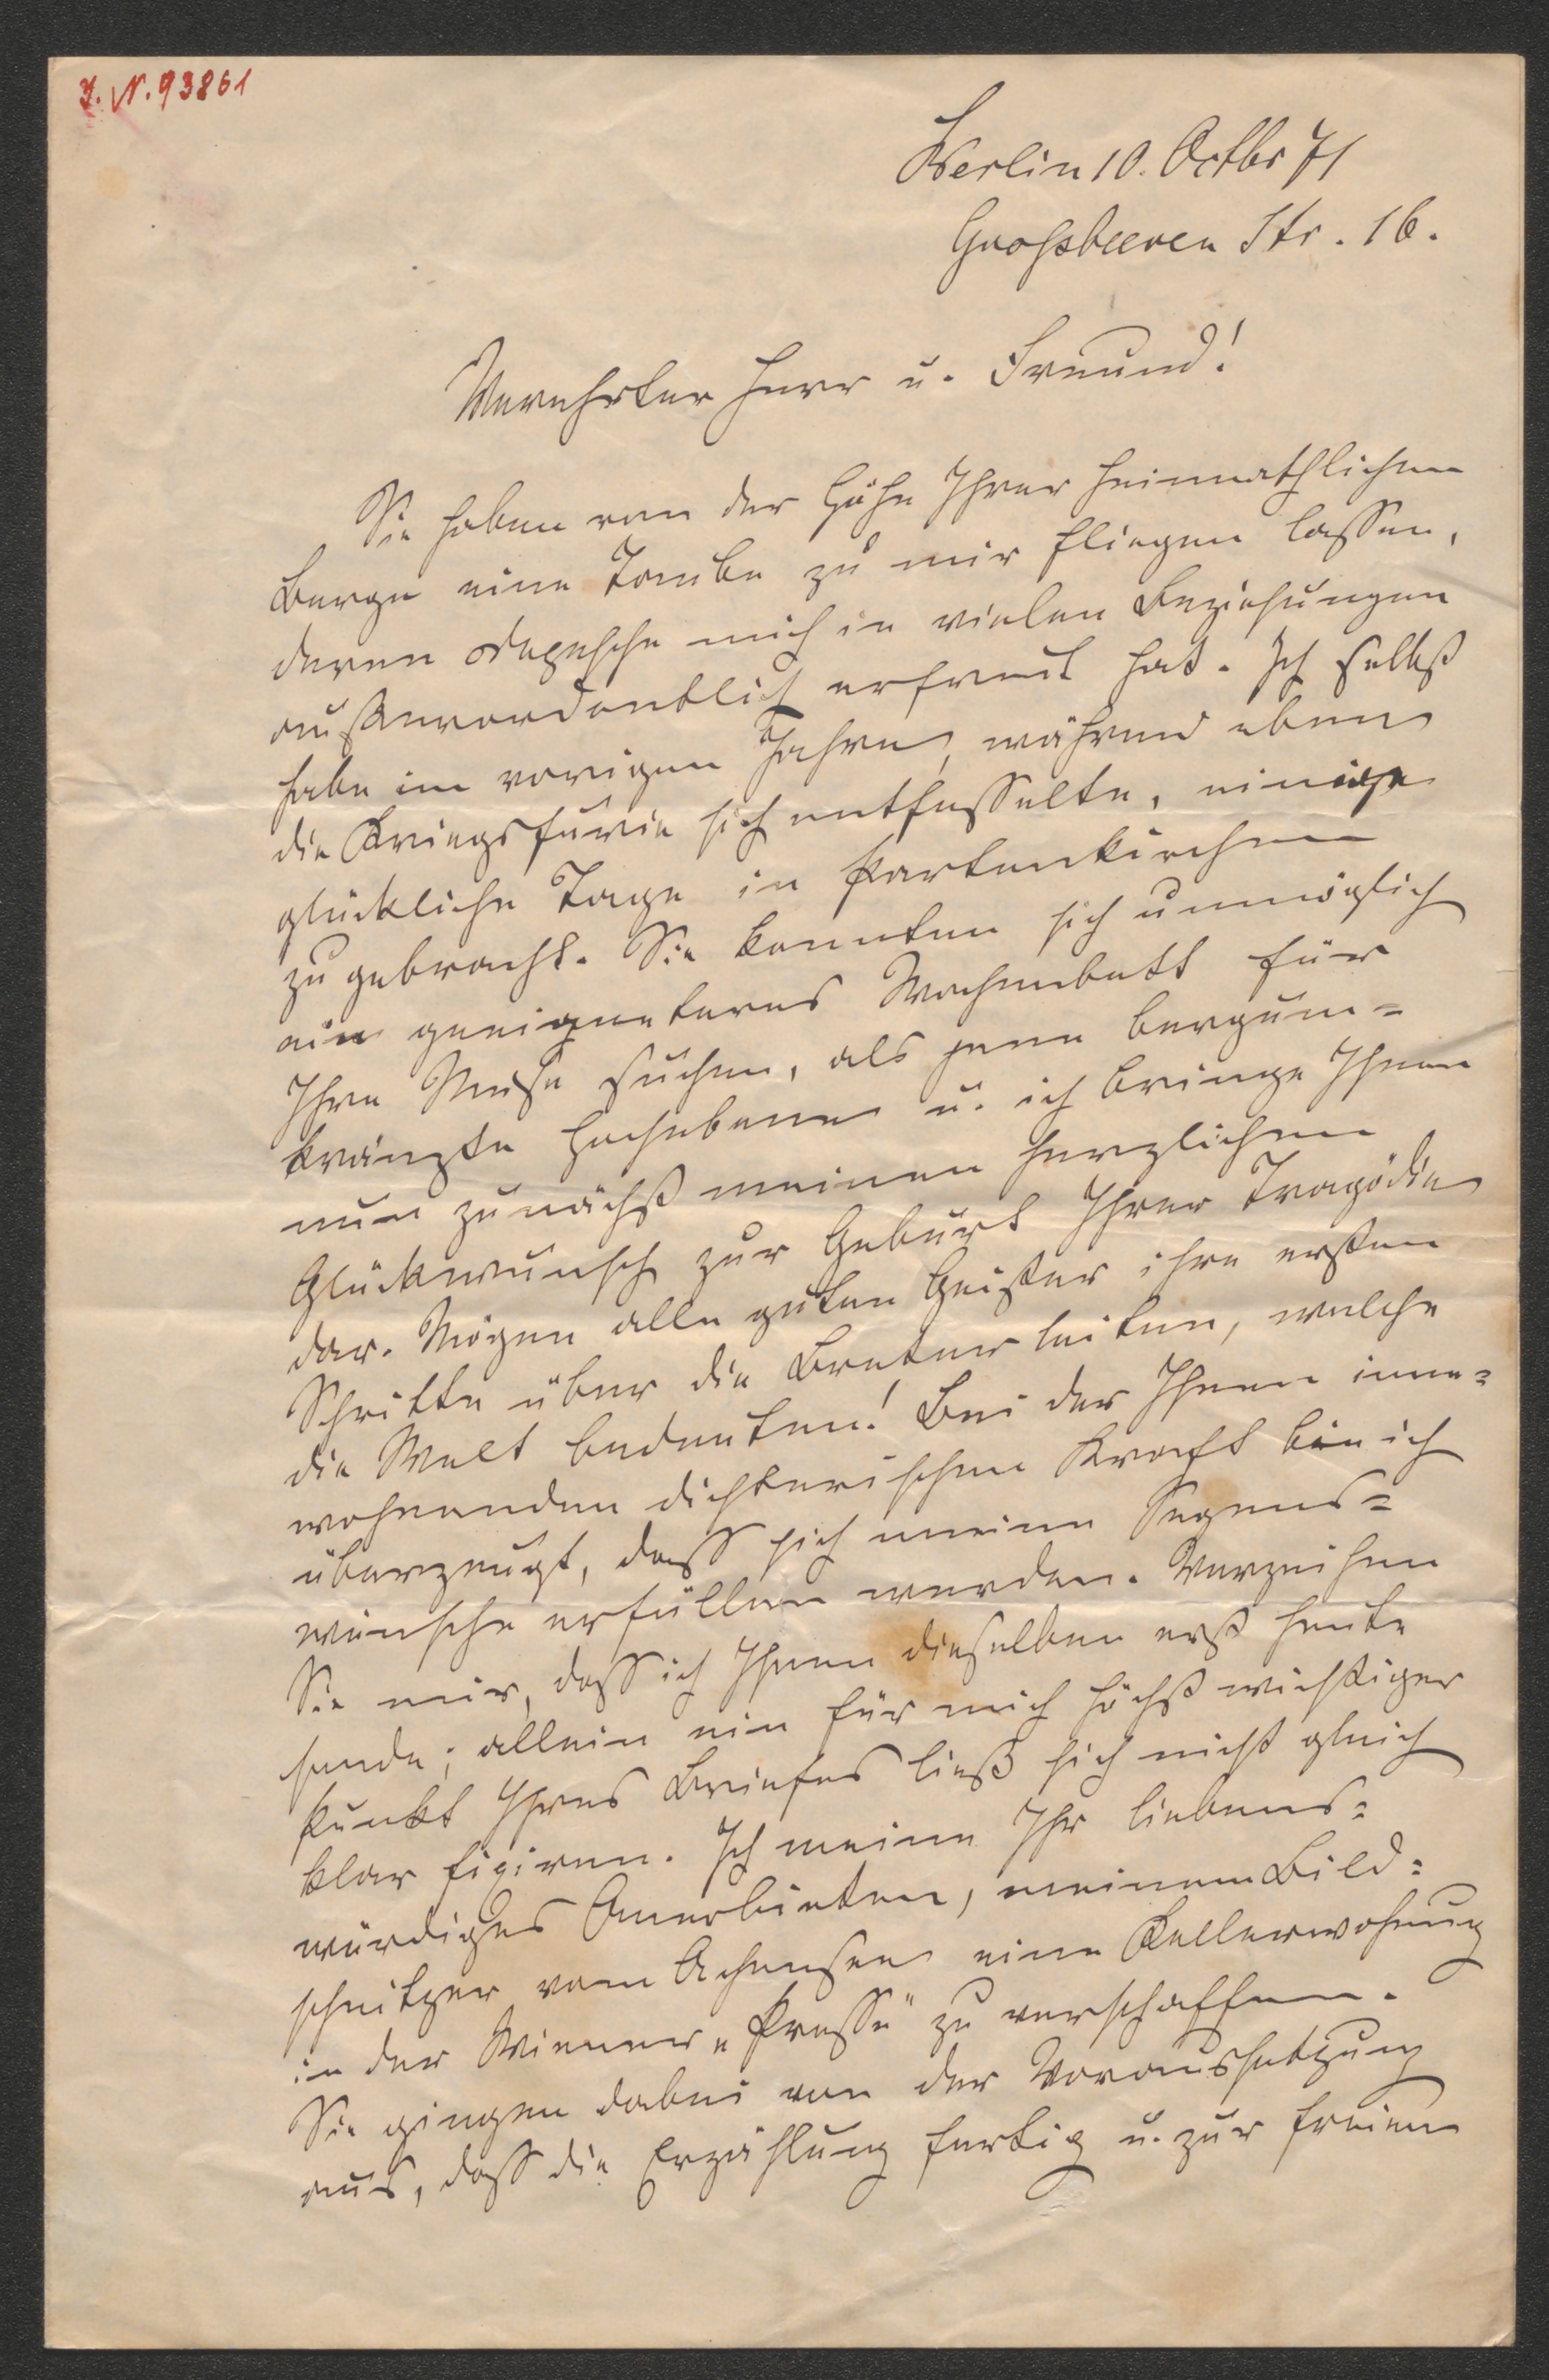 J. N. 93861
Berlin 10. Octbr 71
Großbeeren Str. 16.
Verehrter Herr u. Freund!
Sie haben von der Höhe Ihrer heimathlichen
Berge eine Taube zu mir fliegen lassen,
deren Depesche mich in vielen Beziehungen
außerordentlich erfreut hat. Ich selbst
habe im vorigen Jahre, während eben
die Kriegsfurie sich entfesselte, einige
glückliche Tage in Partenkirchen
zugebracht. Sie konnten sich unmöglich
ein geeigneteres Wochenbett für
Ihre Muse suchen, als jene bergum=
kränzte Hochebene u. ich bringe Ihnen
nun zunächst meinen herzlichen
Glückwunsch zur Geburt Ihrer Tragödie
dar. Mögen alle guten Geister ihre ersten
Schritte über die Breter leiten, welche
die Welt bedeuten! Bei der Ihnen inne=
wohnenden dichterischen Kraft bin ich
überzeugt, dass sich meine Segens=
wünsche erfüllen werden. Verzeihen
Sie mir, dass ich Ihnen dieselben erst heute
sende; allein ein für mich höchst wichtiger
Punkt Ihres Briefes ließ sich nicht gleich
klar fixiren. Ich meine Ihr liebens=
würdiges Anerbieten, meinem Bild=
schnitzer vom Achensee eine Kellerwohnung
in der Wiener „Presse" zu verschaffen.
Sie gingen dabei von der Voraussetzung
aus, dass die Erzählung fertig u. zur freien